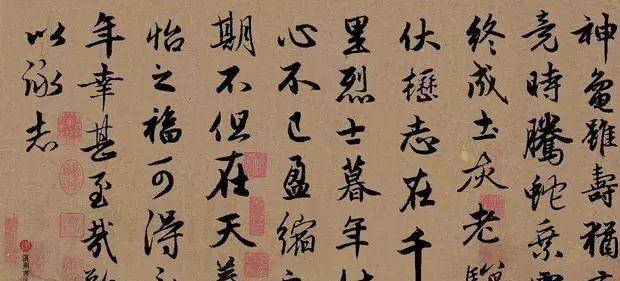 神龜雖壽猶
竟時騰蛇乗
終成土灰老驥
伏櫪志在千
里烈士暮年
心不已盈縮
期不但在天
怡之福可得
年幸甚至哉
以詠志